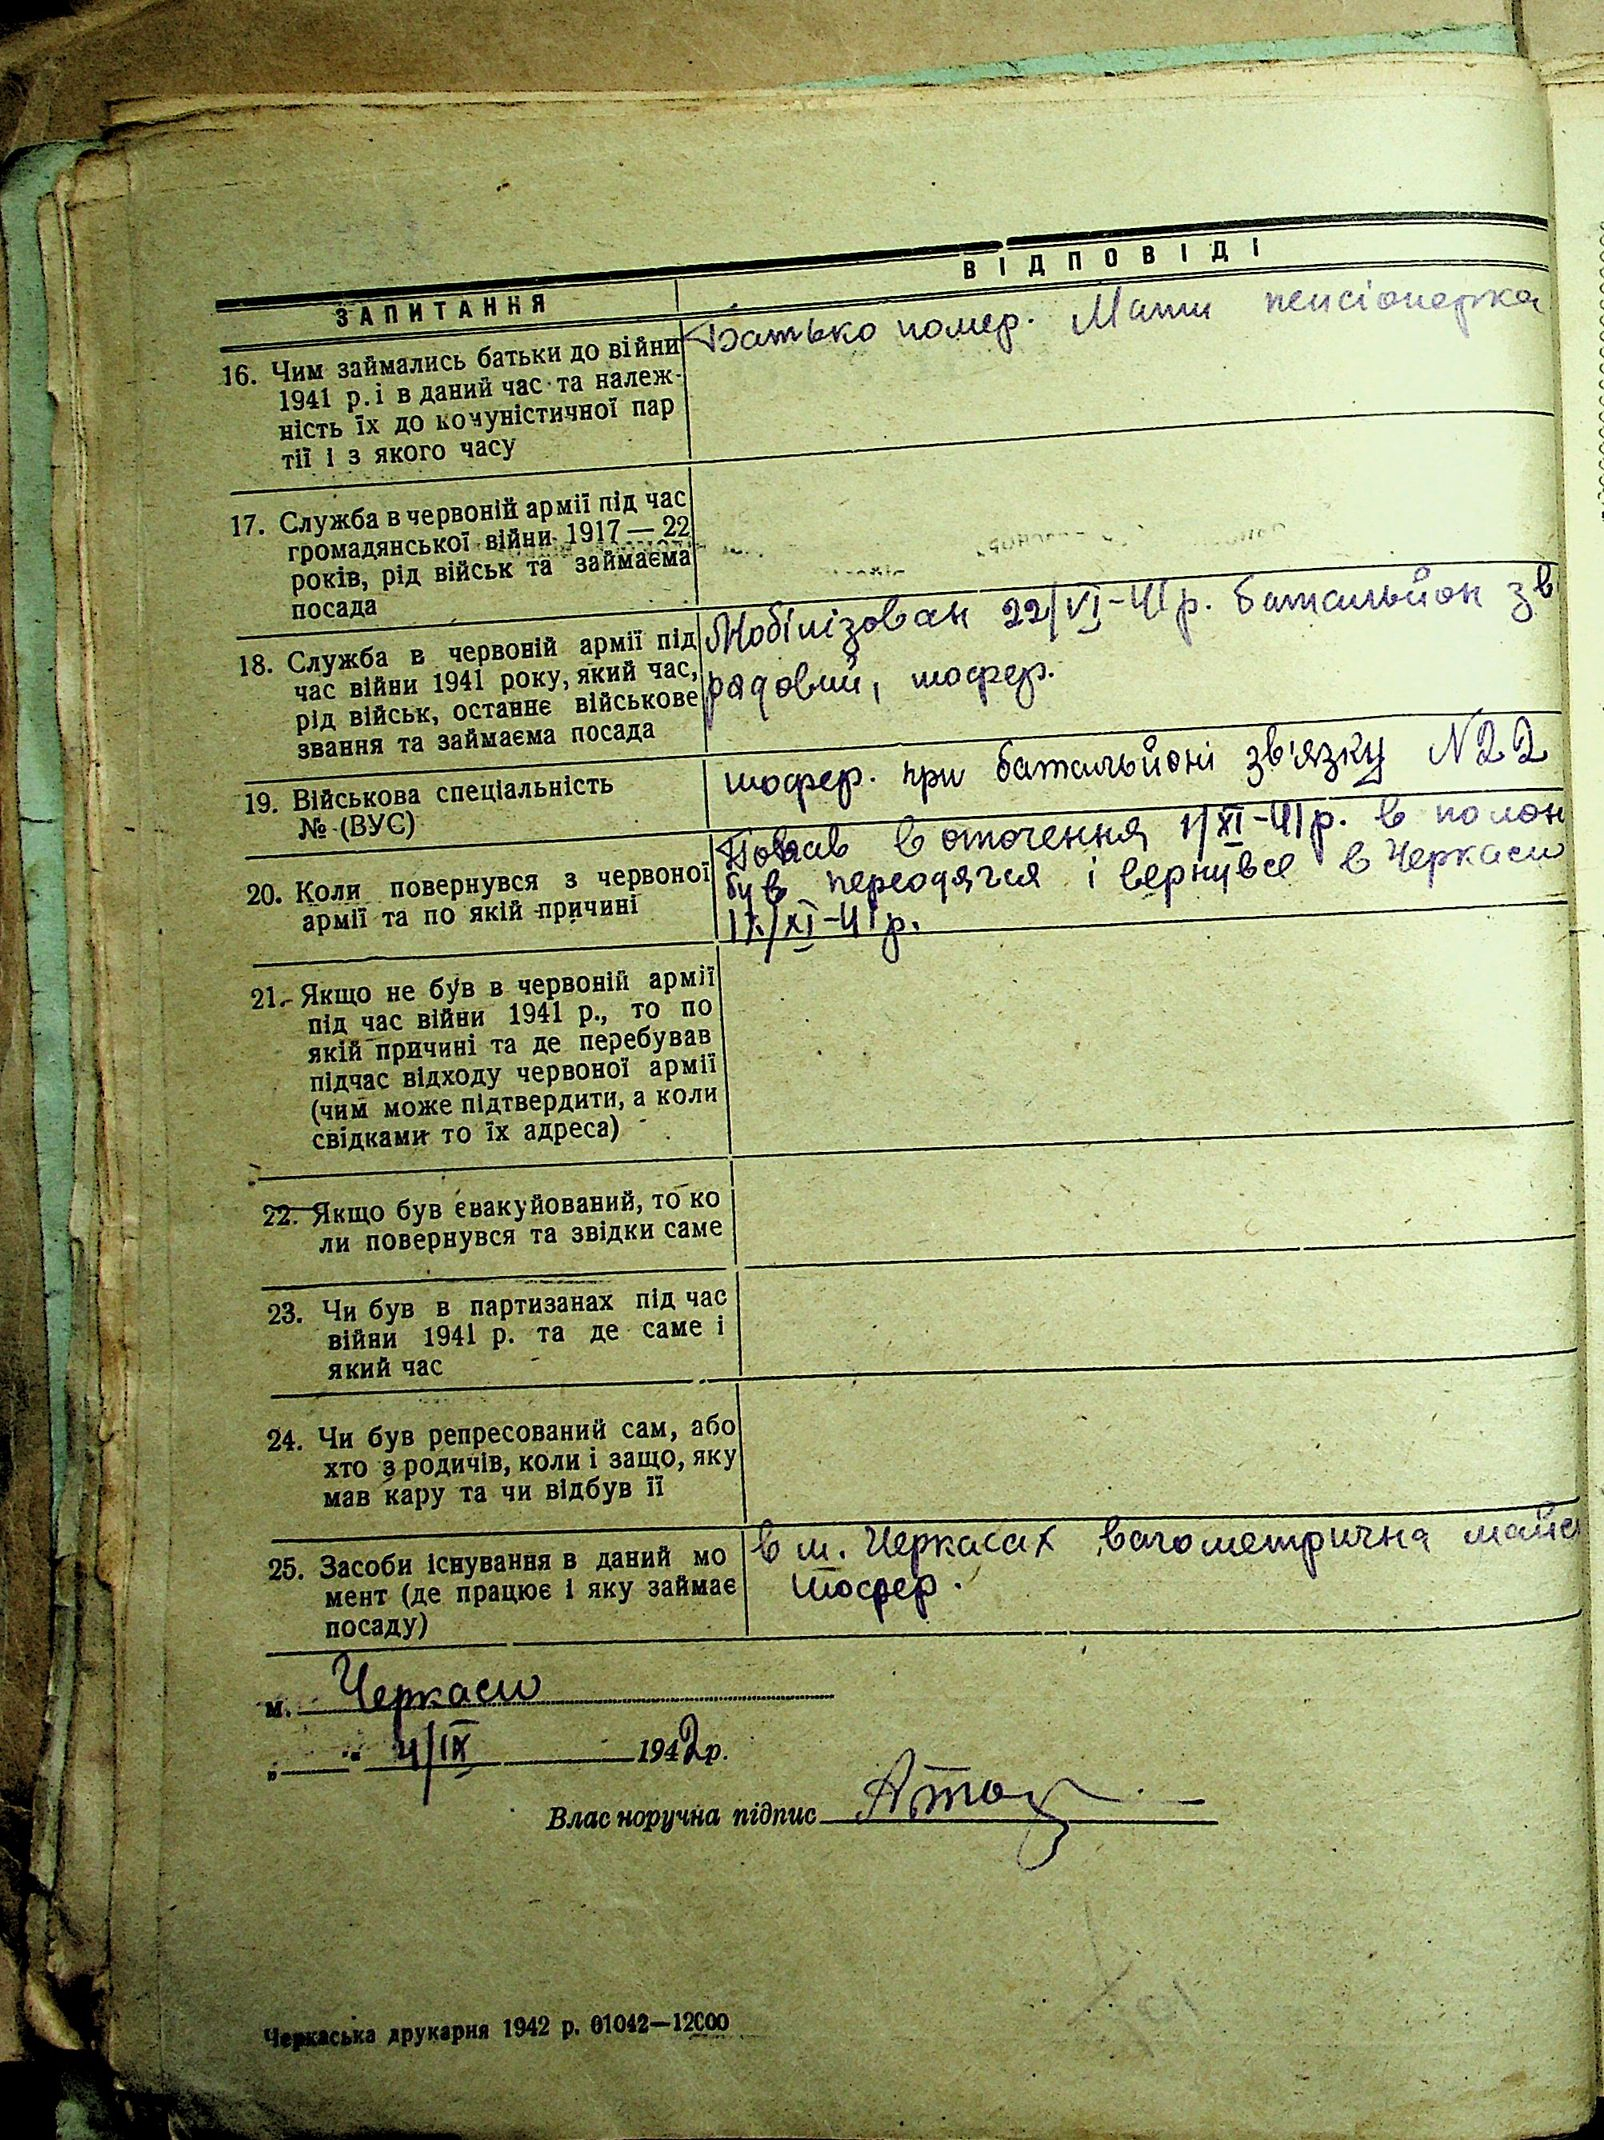 ЗАПИТАННЯ
ВІДПОВІДІ
16. Чим займались батьки до війни
1941 р. і в даний час та належ-
ність їх до комуністичної пар
тії і з якого часу
Батько помер. Мати пенсіонерка
17. Служба в червоній армії під час
громадянської війни 1917 — 22
років, рід військ та займаєма
посада
18. Служба в червоній армії під
час війни 1941 року, який час,
рід військ, останнє військове
звання та займаєма посада
Мобілізован 22/VI-41 р. батальйон зв
рядовий, шофер.
19. Військова спеціальність
№ (ВУС)
шофер. при батальйоні зв'язку N22
20. Коли повернувся з червоної
армії та по якій причині
Попав в оточення 1/XI-41 р. в полон
був переодягся і вернувсе в Черкаси
/XI-41 р.
21. Якщо не був в червоній армії
під час війни 1941 р., то по
якій причині та де перебував
підчас відходу червоної армії
(чим може підтвердити, а коли
свідками то їх адреса)
22. Якщо був евакуйований, то ко
ли повернувся та звідки саме
23. Чи був в партизанах під час
війни 1941 р. та де саме і
який час
24. Чи був репресований сам, або
хто з родичів, коли і защо, яку
мав кару та чи відбув її
25. Засоби існування в даний мо
мент (де працює і яку займає
посаду)
в м. Черкасах вагометрична майс
шофер.
м. Черкаси
„ “ 4/IX 1942 р.
Влас норучна підпис
Черкаська друкарня 1942 р. 01042—12000